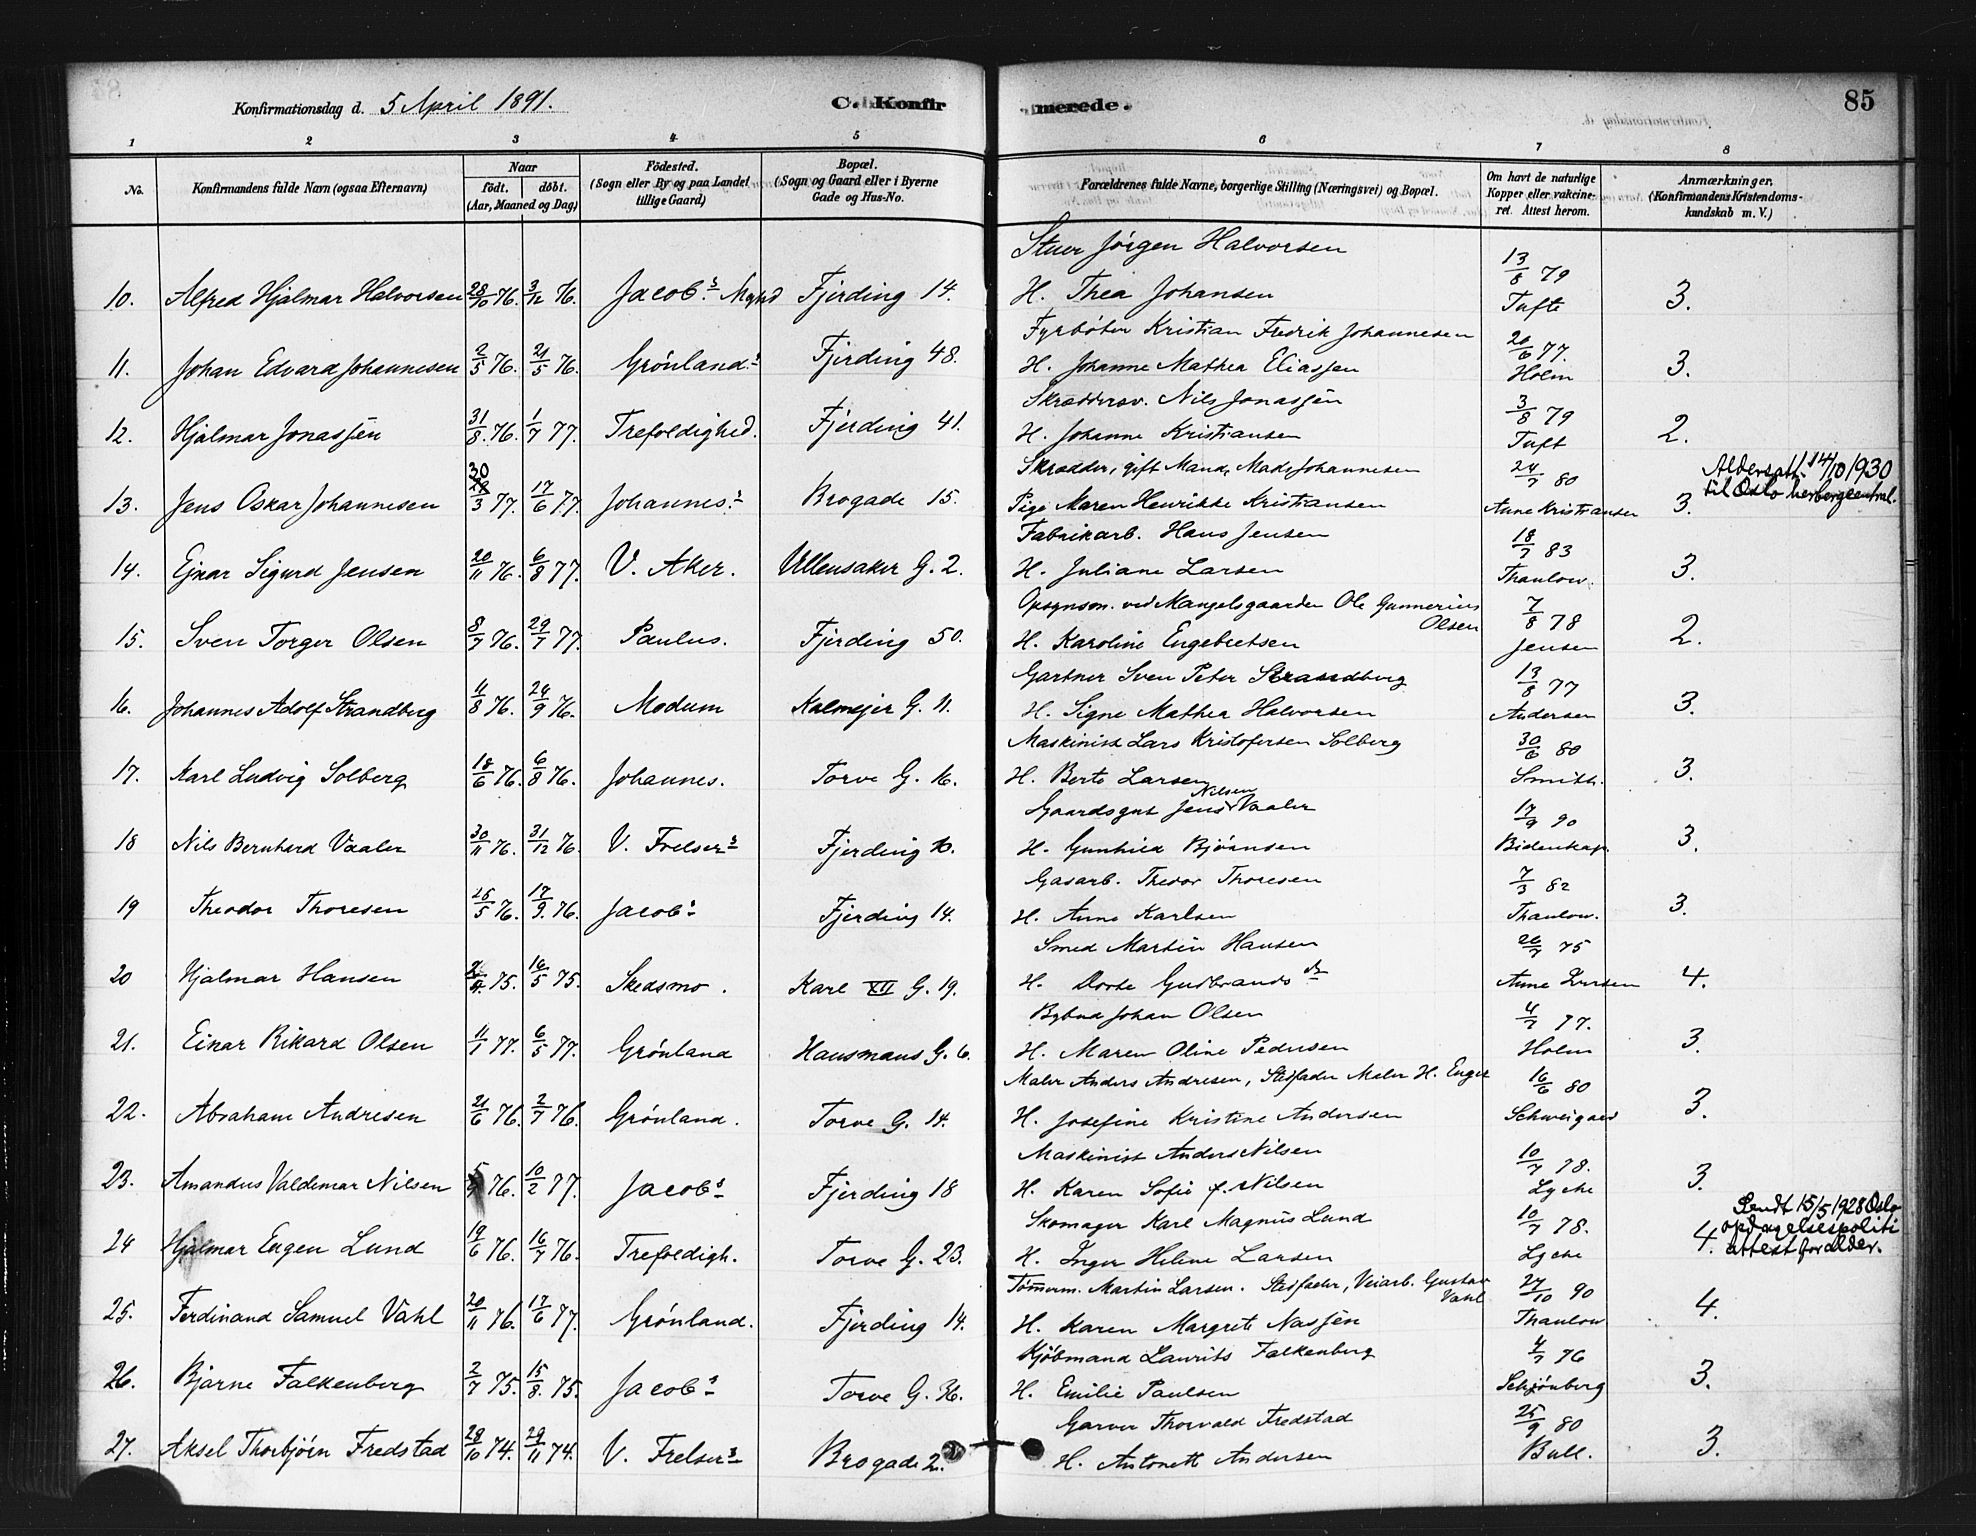 Konfirmationsdag d. 5 April 1891.
C. Konfirmerede.
85
1 2 3 4 5 6 7 8
No.
Konfirmandens fulde Navn (ogsaa Efternavn)
Naar
födt. döbt.
(Aar, Maaned og Dag)
Födested.
(Sogn eller By og paa Landet
tillige Gaard)
Bopæl.
(Sogn og Gaard eller i Byerne
Gade og Hus-No.
Forældrenes fulde Navne, borgerlige Stilling (Næringsvei) og Bopæl.
Om havt de naturlige
Kopper eller vakcine-
ret. Attest herom.
Anmærkninger.
(Konfirmandens Kristendoms-
kundskab m. V.)
Stuer Jörgen Halvorsen 13/8 79
10. Alfred Hjalmar Halvorsen 28/10 76. 3/12 76. Jacobs Mghd Fjerding 14. H. Thea Johansen Tufte 3.
Fyrböter Kristian Fredrik Johannesen 20/6 77.
11. Johan Edvard Johannesen 2/3 76. 21/5 76. Grönlands Fjerding 48. H. Johanne Mathea Eliassen Holm 3.
Skræddersv. Nils Jonassen 3/8 79
12. Hjalmar Jonassen 31/8. 76. 1/7 77. Trefoldighed. Fjerding 41. H. Johanne Kristiansen Tuft 2.
Skrædder, gift Mand, Mads Johannesen 24/7 80 Aldersatt. 14/10/1930
13. Jens Oskar Johannesen 30/3 77. 17/6 77. Johannes. Brogade 15. Pige Maren Henrikke Kristiansen Anne Kristiansen 3. til Oslo herbergcentral.
Fabrikarb. Hans Jensen 18/7 83
14. Ejnar Sigurd Jensen 20/11 76. 6/8 77. V. Aker. Ullensaker G. 2. H. Juliane Larsen Thaulow. 3.
Opsynsm. ved Mangelsgaarden Ole Gunnerius Olsen 7/8 78
15. Sven Torger Olsen 8/7 76. 29/7 77. Paulus. Fjerding 50. H. Karoline Engebretsen Jensen 2.
Gartner Sven Peter Strandberg 13/8 77
16. Johannes Adolf Strandberg 11/8 76. 24/9 76. Modum Kalmejer G. 11. H. Signe Mathea Halvorsen Andersen 3.
Maskinist Lars Kristofersen Solberg 30/6 80
17. Karl Ludvig Solberg 18/6 76. 6/8 76. Johannes. Torve G. 16. H. Berte Larsen Smith. 3.
Gaardsgut Jens Nilsen Vaaler 17/9 90
18 Nils Bernhard Vaaler 30/11 76. 31/12 76. V. Frelsers Fjerding 10. H. Gunhild Bjørnsen Bidenkap. 3.
Gasarb. Thedor Thoresen 7/3 82
19 Theodor Thoresen 25/5 76. 17/9. 76. Jacobs Fjerding 14. H. Anne Karlsen Thaulow. 3.
Smed Martin Hansen 26/7 75
20 Hjalmar Hansen 75. 16/5 75. Skedsmo. Karl XII G. 19. H. Dorte Gudbrandsdr Anne Larsen 4.
Bybud Johan Olsen 4/7 77.
21. Einar Rikard Olsen 11/1 77. 6/5 77. Grönland Hausmans G. 6. H. Maren Oline Pedersen Holm 3.
Maler Anders Andresen, Stedfader Maler H. Enger 16/6 80
22. Abraham Andresen 21/6 76. 2/7 76. Grönland. Torve G. 14. H. Josefine Kristine Andersen Schweigaard 3.
Maskinist Anders Nilsen 10/7 78.
23. Amandus Valdemar Nilsen 5/9 76. 10/2 77. Jacobs Fjerding 18 H. Karen Sofie f. Nilsen Lyche 3.
Skomager Karl Magnus Lund 10/7 78. Sendt 15/5 1928 Oslo
24 Hjalmar Eugen Lund 19/6 76. 16/7 76. Trefoldigh. Torve G. 23. H. Inger Helene Larsen Lyche 4. opdagelsespoliti
attest for alder.
Tömmerm. Martin Larsen. Stedfader, Veiarb. Gustav Vahl 27/10 90
25. Ferdinand Samuel Vahl 20/11 76. 17/6 77. Grönland. Fjerding 14. H. Karen Margrete Nassen Thaulow 4.
Kjöbmand Laurits Falkenberg 4/7 76
26. Bjarne Falkenberg 2/7 75. 15/8. 75. Jacobs Torve G. 36. H. Emilie Paulsen Schjönberg 3.
Garver Thorvald Fredstad 25/9 80
27. Aksel Thorbjörn Fredstad 28/10 74. 29/11 74. V. Frelsers Brogade 2. H. Antonett Andersen Bull. 3.